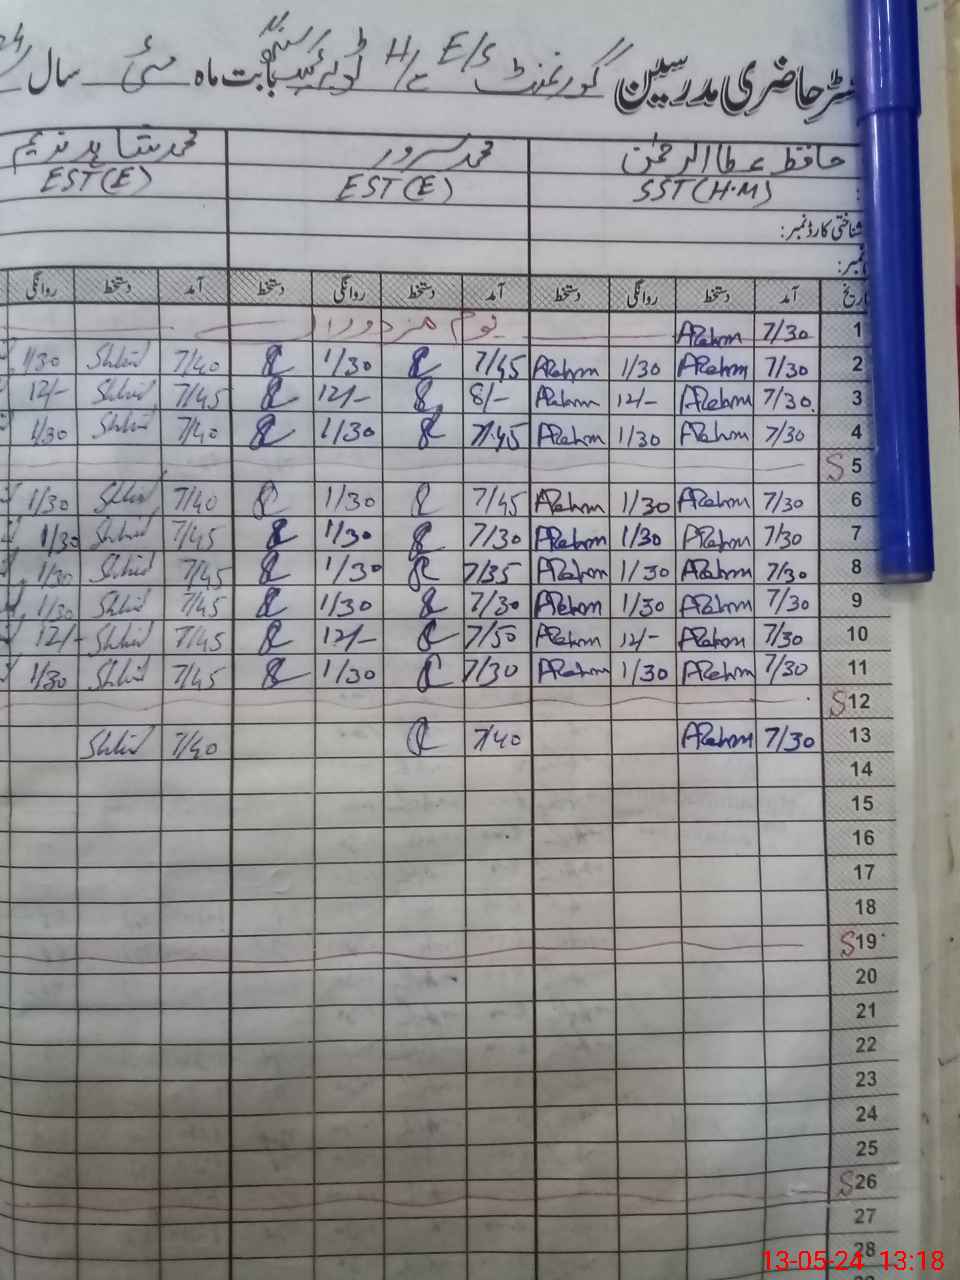 رجسٹر حاضری مدرسین گورنمنٹ E/S H/ بابت ماہ مئی سال
حافظ عطاالرحمٰن محمد سرور محمد شاہد ندیم
SST(H.M) EST(E) EST(E)
شناختی کارڈ نمبر:
نمبر:
تاریخ آمد دستخط روانگی دستخط آمد دستخط روانگی دستخط آمد دستخط روانگی
1 7/30 ARehm یوم مزدوراں
2 7/30 ARehm 1/30 ARehm 7/45 1/30 7/40 Shhid 1/30
3 7/30 ARehm 12/- ARehm 8/- 12/- 7/45 Shhid 12/-
4 7/30 ARehm 1/30 ARehm 7/45 1/30 7/40 Shhid 1/30
S 5
6 7/30 ARehm 1/30 ARehm 7/45 1/30 7/40 Shhid 1/30
7 7/30 ARehm 1/30 ARehm 7/30 1/30 7/45 Shhid 1/30
8 7/30 ARehm 1/30 ARehm 7/35 1/30 7/45 Shhid 1/30
9 7/30 ARehm 1/30 ARehm 7/30 1/30 7/45 Shhid 1/30
10 7/30 ARehm 12/- ARehm 7/50 12/- 7/45 Shhid 12/-
11 7/30 ARehm 1/30 ARehm 7/30 1/30 7/45 Shhid 1/30
S 12
13 7/30 ARehm 7/40 7/40 Shhid
14
15
16
17
18
S 19
20
21
22
23
24
25
S 26
27
28
13-05-24 13:18